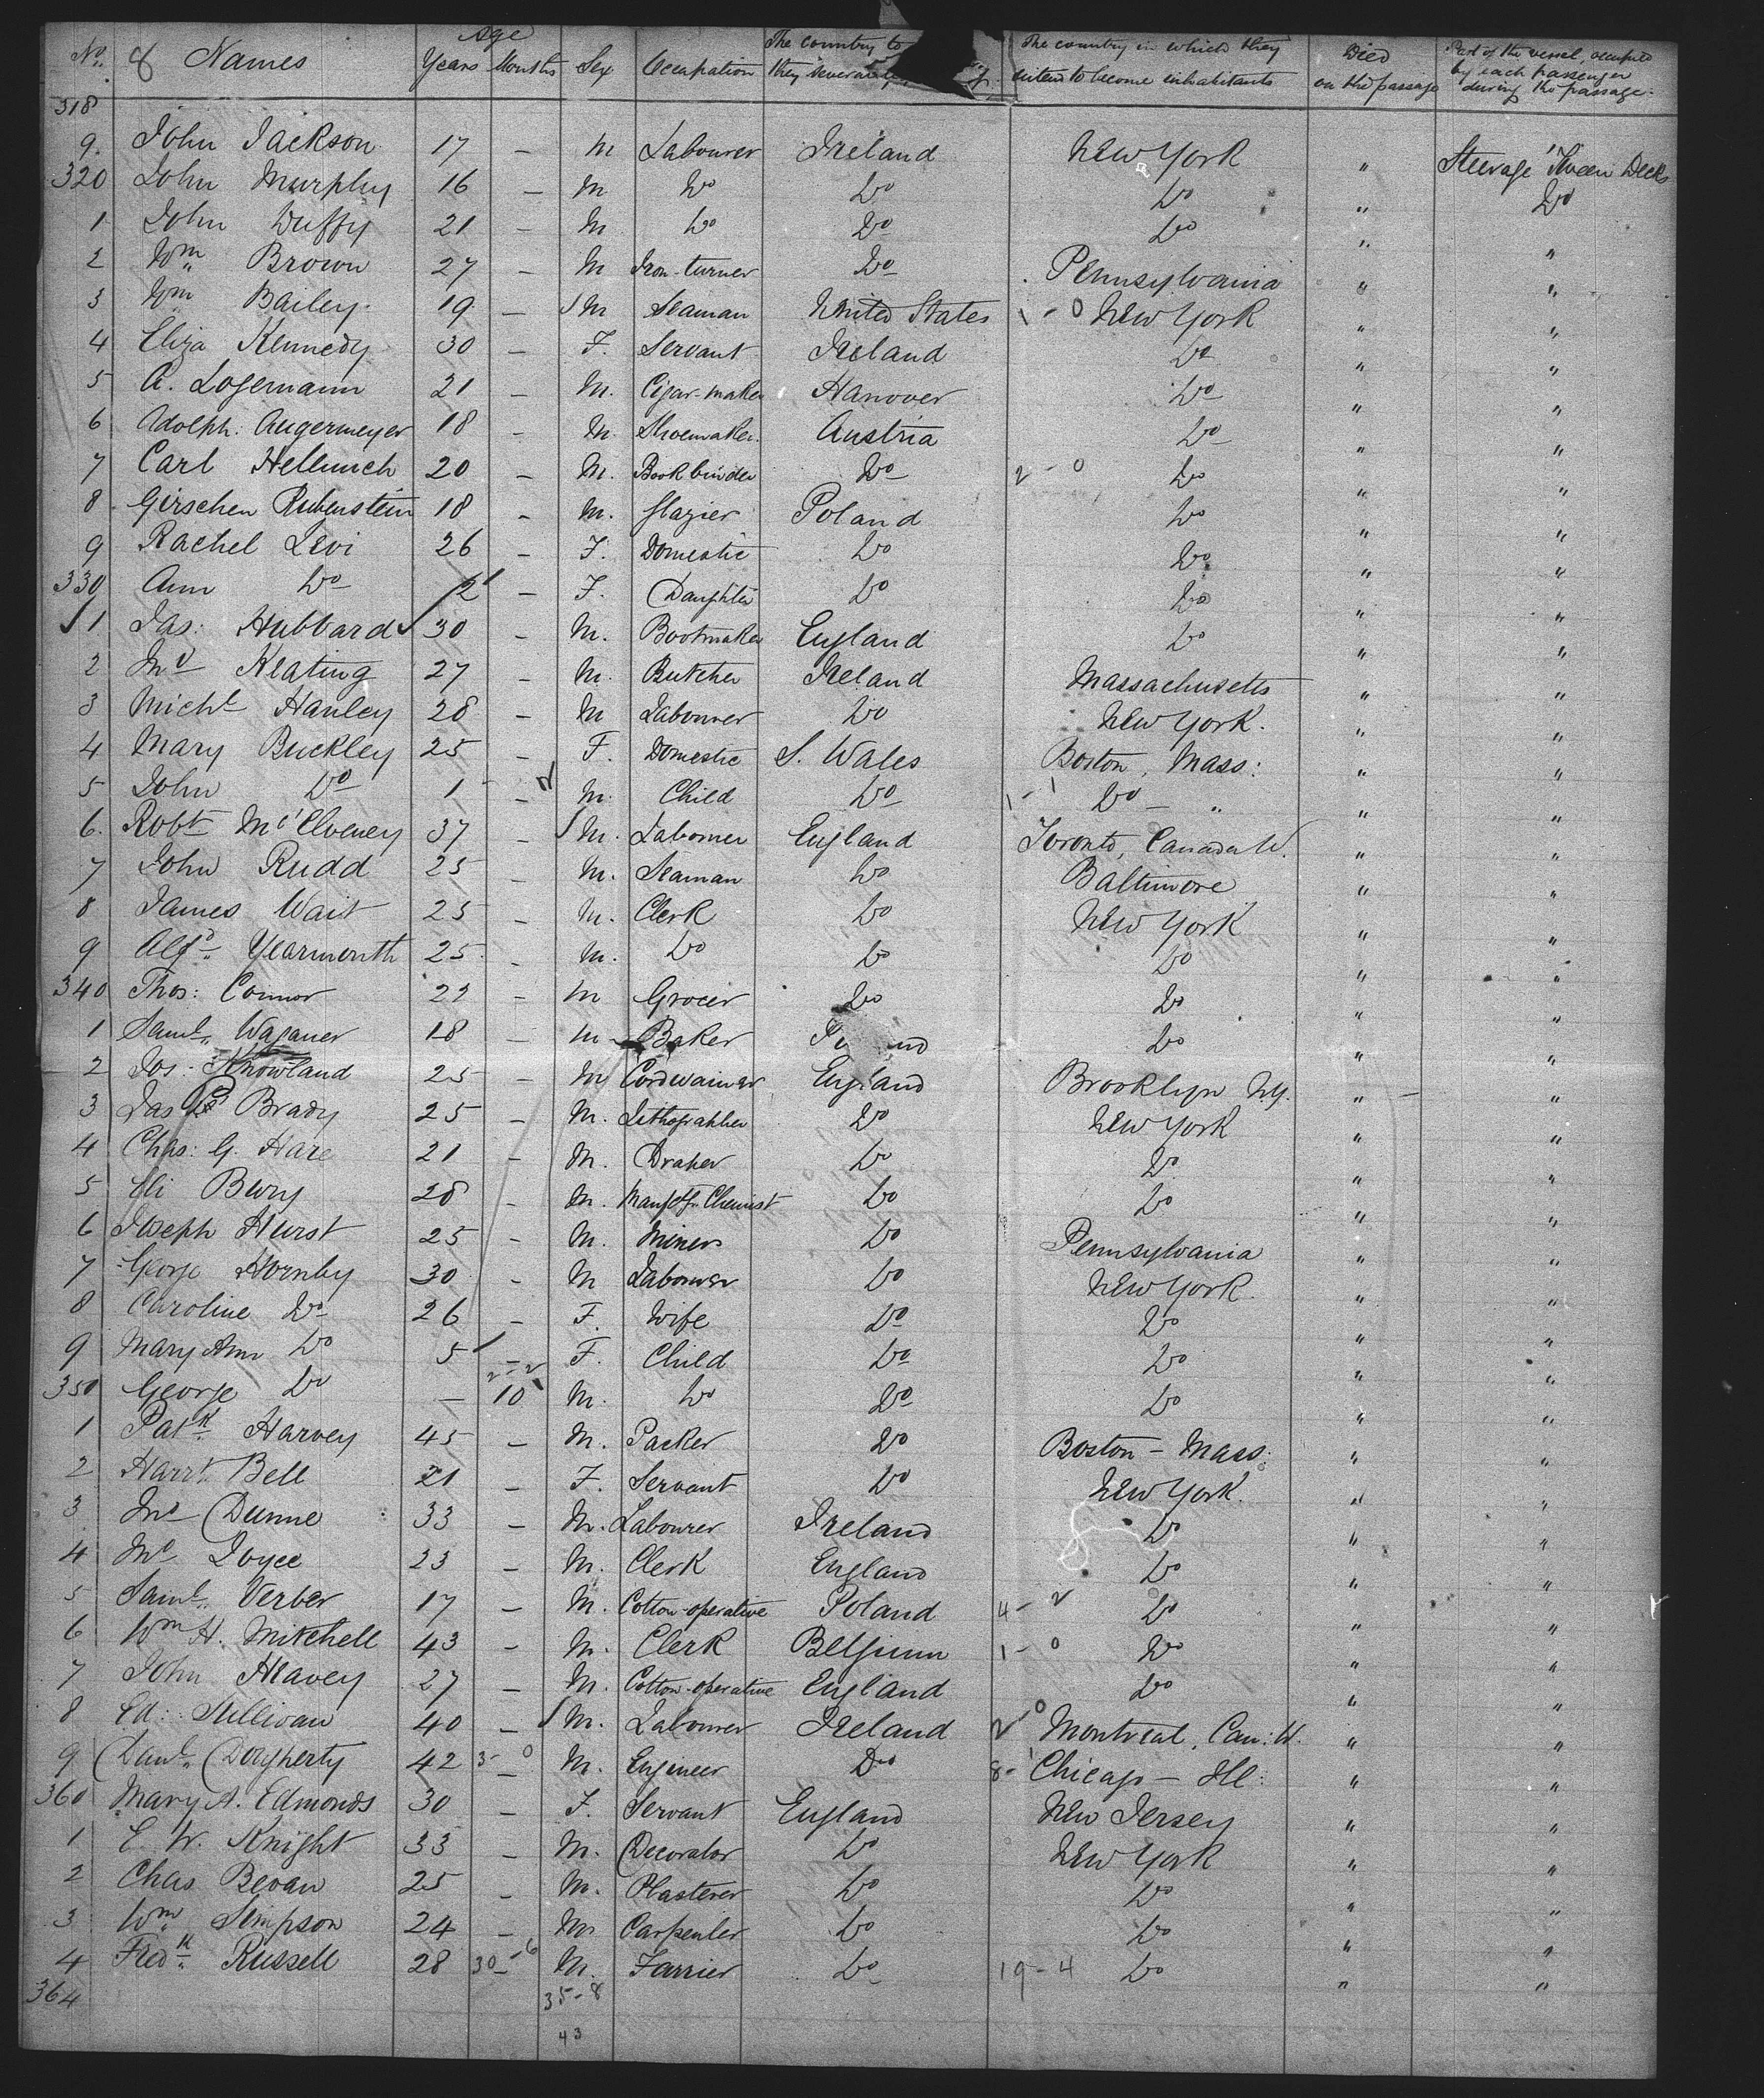 No. 8 Names Age Years Months Sex Occupation The country to they severally The country in which they intend to become inhabitants Died on the passage Part of the vessel occupied by each passenger during the passage.
318
9. John Jackson 17 – M Labourer Ireland New York " Steerage 'Tween Decks
320 John Murphy 16 – M Do Do Do " Do
1 John Duffy 21 – M Do Do Do " "
2 Wm Brown 27 – M Iron-turner Do Pennsylvania " "
3 Wm Bailey 19 – M Seaman United States 1-0 New York " "
4 Eliza Kennedy 30 – F. Servant Ireland Do " "
5 A. Logemann 21 – M. Cigar-maker Hanover Do " "
6 Adolph: Augermeyer 18 – M. Shoemaker. Austria Do " "
7 Carl Hellmich 20 – M. Bookbinder Do 2-0 Do " "
8 Girschen Rubenstein 18 – M. Glazier Poland Do " "
9 Rachel Levi 26 – F. Domestic Do Do " "
330 Ann Do 2 – F. Daughter Do Do " "
1 Jas: Hubbard 30 – M. Bootmaker England Do " "
2 Jno Keating 27 – M. Butcher Ireland Massachusetts " "
3 Michl Hanley 28 – M Labourer Do New York. " "
4 Mary Buckley 25 – F. Domestic S. Wales Boston, Mass: " "
5 John Do 1 – M. Child Do 1-1 Do – " " "
6. Robt McElveney 37 – M. Labourer England Toronto, Canada W. " "
7 John Rudd 25 – M. Seaman Do Baltimore " "
8 James Wait 25 – M. Clerk Do New York " "
9 Alfd. Yearmonth 25 – M. Do Do Do " "
340 Thos: Connor 22 – M Grocer Do Do " "
1 Saml. Waganer 18 – M Baker Do " "
2 Jos: Knowland 25 – M Cordwainer England Brooklyn N.Y. " "
3 Jas Brady 25 – M. Lithographer Do New York " "
4 Chas: G. Hare 21 – M. Draper Do Do " "
5 Eli Bury 28 – M. Manufg. Chemist Do Do " "
6 Joseph Hurst 25 – M. Miner Do Pennsylvania " "
7 George Hornby 30 – M Labourer Do New York. " "
8 Caroline Do 26 – F. Wife Do Do " "
9 Mary Ann Do 5 – F. Child Do Do " "
350 George Do – 10 M. Do Do Do " "
1 Patk Harvey 45 – M. Packer Do Boston – Mass: " "
2 Harrt. Bell 21 – F. Servant Do New York. " "
3 Jno Dunne 33 – M. Labourer Ireland Do " "
4 Jno Joyce 23 – M. Clerk England Do " "
5 Saml. Verber 17 – M. Cotton-operative Poland 4-2 Do " "
6 Wm H. Mitchell 43 – M. Clerk Belgium 1-0 Do " "
7 John Heavey 27 – M. Cotton-operative England Do " "
8 Ed: Sullivan 40 – M. Labourer Ireland 2-0 Montreal, Can: W. " "
9 Danl. Dougherty 42 3-0 – M. Engineer Do 8-1 Chicago – Ill: " "
360 Mary A. Edmonds 30 – F. Servant England New Jersey " "
1 E. W. Knight 33 – M. Decorator Do New York " "
2 Chas Bevan 25 – M. Plasterer Do Do " "
3 Wm Simpson 24 – M Carpenter Do Do " "
4 Fredk. Russell 28 30-6 M. Farrier Do 19-4 Do " "
364 35-8
43